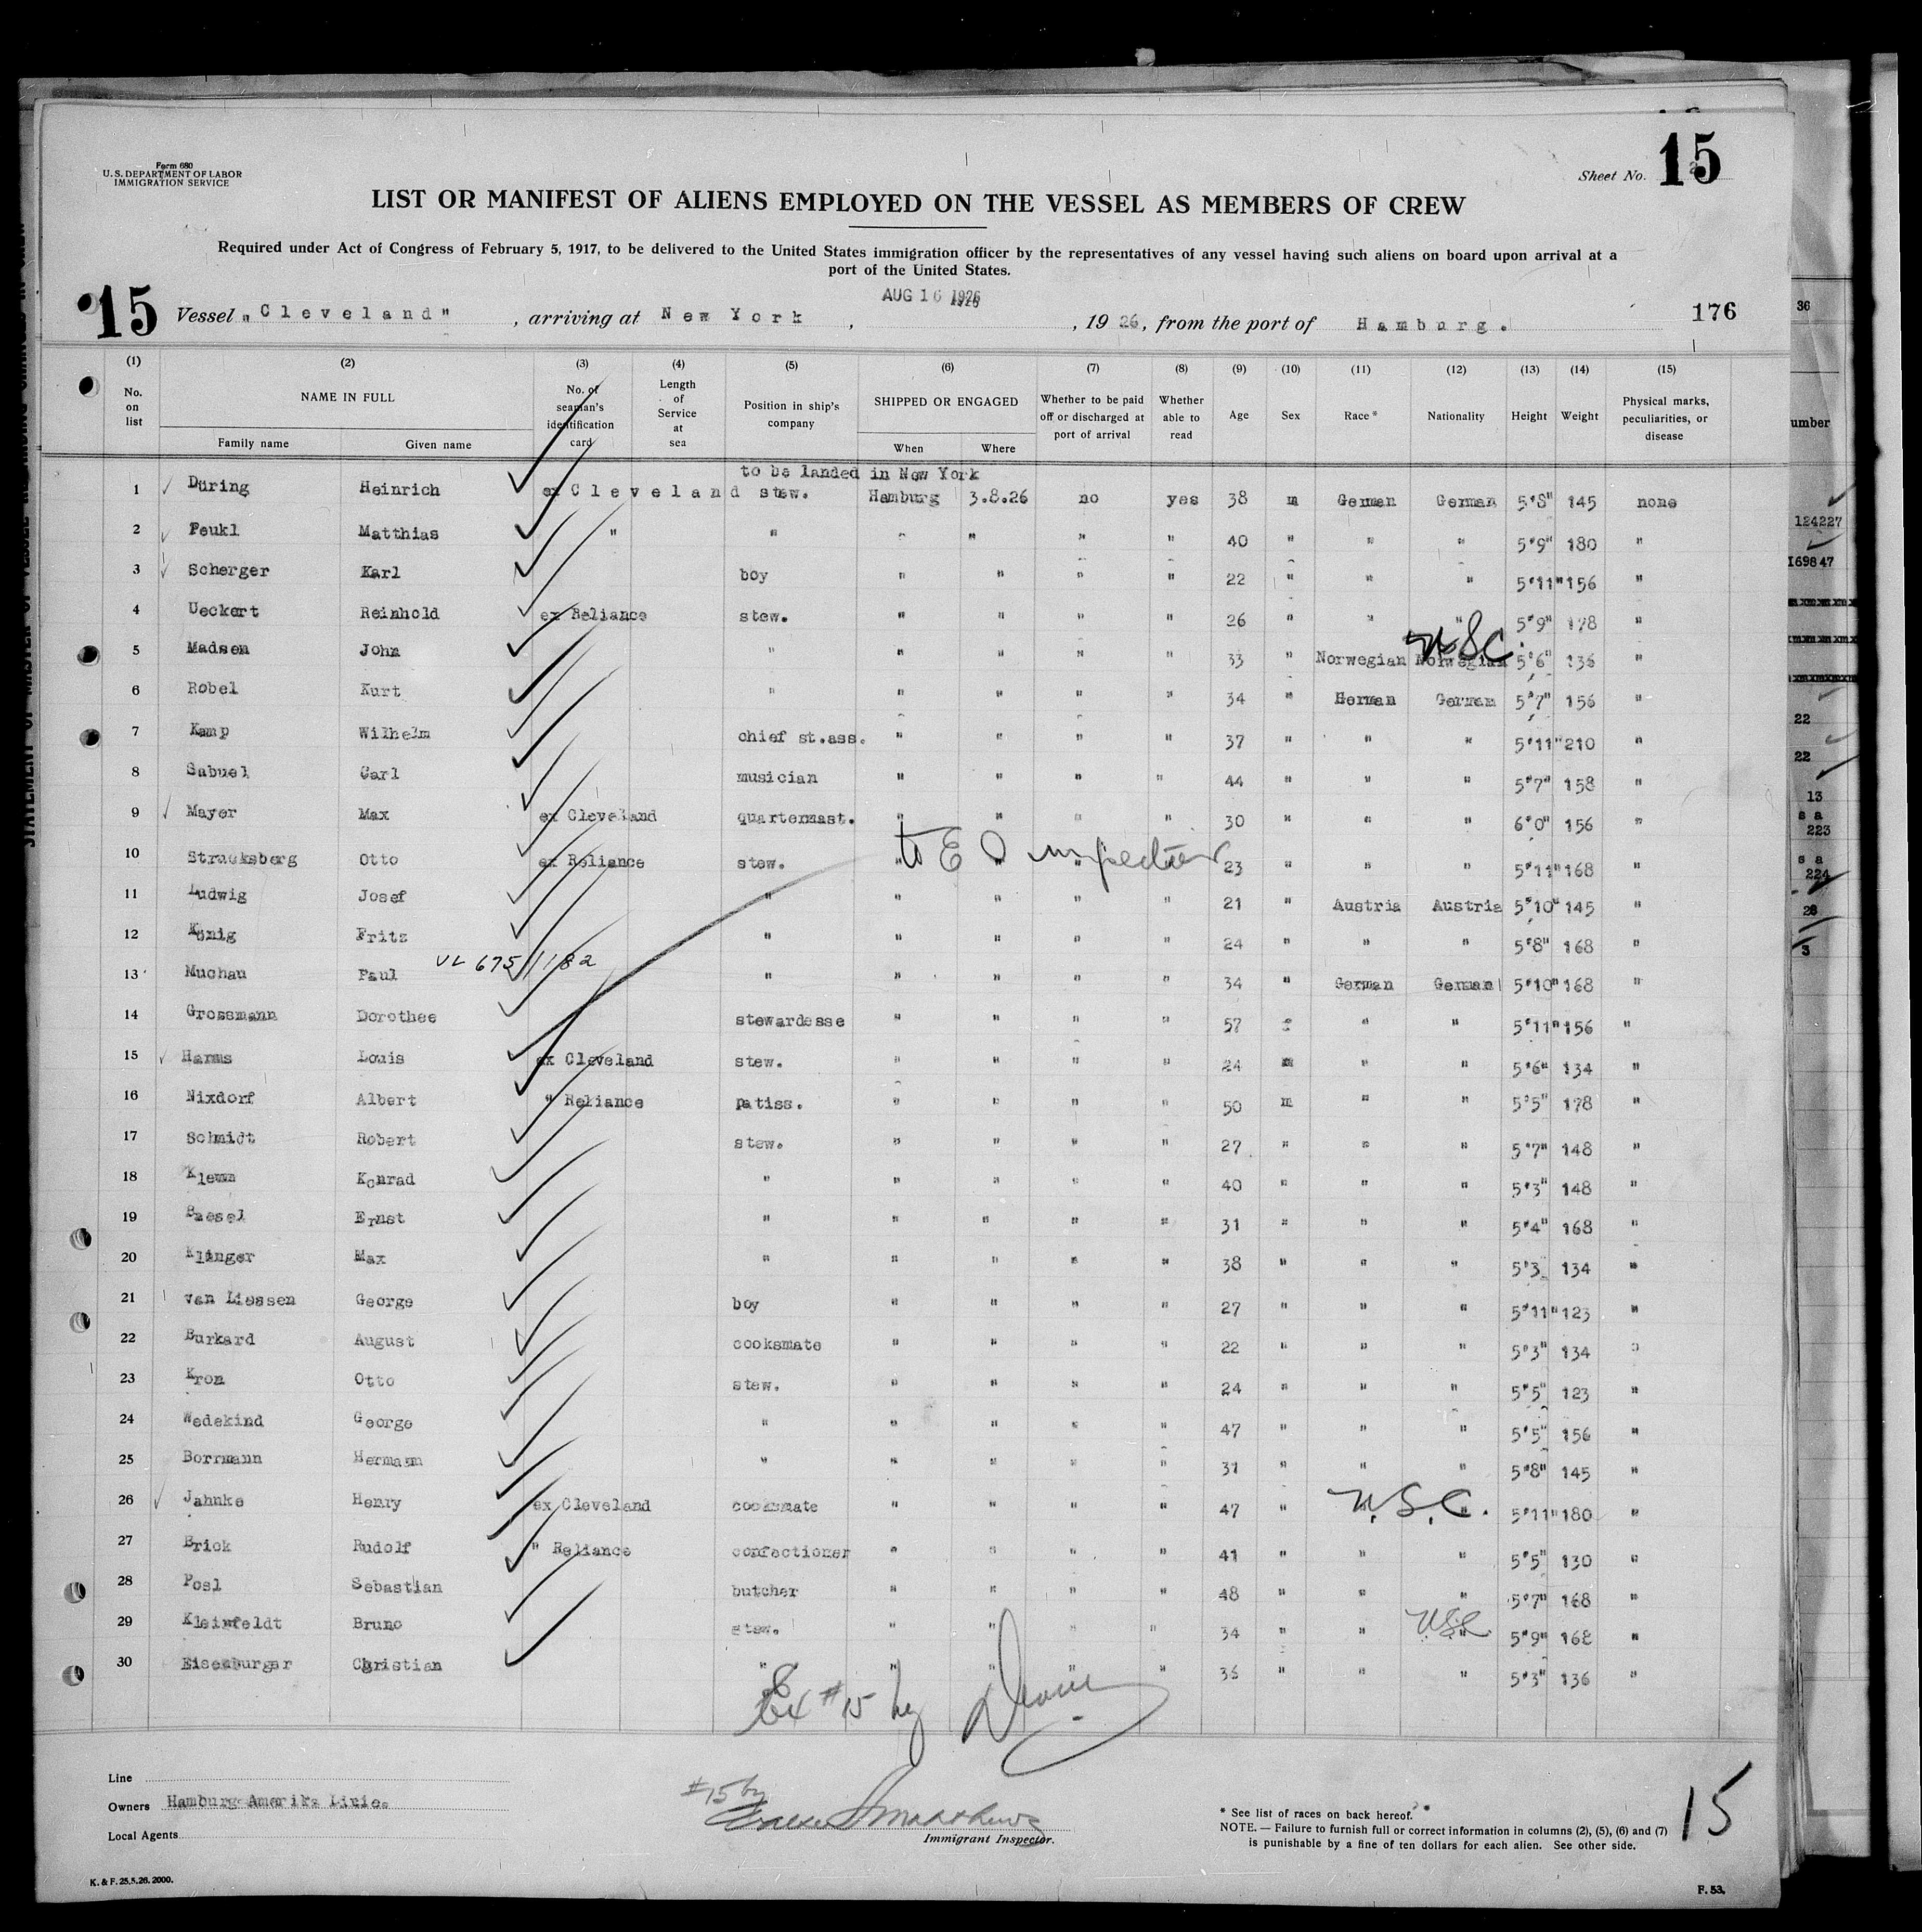 Form 680
U. S. DEPARTMENT OF LABOR
IMMIGRATION SERVICE
Sheet No. 15
LIST OR MANIFEST OF ALIENS EMPLOYED ON THE VESSEL AS MEMBERS OF CREW
Required under Act of Congress of February 5, 1917, to be delivered to the United States immigration officer by the representatives of any vessel having such aliens on board upon arrival at a
port of the United States.
AUG 16 1926
15 Vessel "Cleveland", arriving at New York, , 1926, from the port of Hamburg. 176
(1) (2) (3) (4) (5) (6) (7) (8) (9) (10) (11) (12) (13) (14) (15)
No. on list NAME IN FULL Family name Given name No. of seaman's identification card Length of Service at sea Position in ship's company SHIPPED OR ENGAGED When Where Whether to be paid off or discharged at port of arrival Whether able to read Age Sex Race * Nationality Height Weight Physical marks, peculiarities, or disease
to be landed in New York
1 Düring Heinrich ex Cleveland stew. Hamburg 3.8.26 no yes 38 m German German 5'8" 145 none
2 Peukl Matthias " " " " " " 40 " " " 5'9" 180 "
3 Scherger Karl boy " " " " 22 " " " 5'11" 156 "
4 Ueckert Reinhold ex Reliance stew. " " " " 26 " " " 5'9" 178 "
5 Madsen John " " " " " 33 " Norwegian Norwegian USC. 5'6" 136 "
6 Robel Kurt " " " " " 34 " German German 5'7" 156 "
7 Kamp Wilhelm chief st.ass. " " " " 37 " " " 5'11" 210 "
8 Sabuel Carl musician " " " " 44 " " " 5'7" 158 "
9 Mayer Max ex Cleveland quartermast. " " " " 30 " " " 6'0" 156 "
10 Strucksberg Otto ex Reliance stew. " " " 23 " " " 5'11" 168 "
to E O inspection
11 Ludwig Josef " " " " " 21 " Austria Austria 5'10" 145 "
12 König Fritz " " " " " 24 " " " 5'8" 168 "
13 Muchau Paul VL 675/1182 " " " " " 34 " German German 5'10" 168 "
14 Grossmann Dorothee stewardesse " " " " 57 " " 5'11" 156 "
15 Harms Louis ex Cleveland stew. " " " " 24 m " " 5'6" 134 "
16 Nixdorf Albert " Reliance patiss. " " " " 50 m " " 5'5" 178 "
17 Schmidt Robert stew. " " " " 27 " " " 5'7" 148 "
18 Klemm Konrad " " " " " 40 " " " 5'3" 148 "
19 Baesel Ernst " " " " " 31 " " " 5'4" 168 "
20 Klinger Max " " " " " 38 " " " 5'3 134 "
21 van Liessen George boy " " " " 27 " " " 5'11" 123 "
22 Burkard August cooksmate " " " " 22 " " " 5'3" 134 "
23 Kron Otto stew. " " " " 24 " " " 5'5" 123 "
24 Wedekind George " " " " " 47 " " " 5'5" 156 "
25 Borrmann Hermann " " " " " 31 " " " 5'8" 145 "
26 Jahnke Henry ex Cleveland cooksmate " " " " 47 " U.S.C. 5'11" 180 "
27 Brick Rudolf " Reliance confectioner " " " " 41 " " " 5'5" 130 "
28 Posl Sebastian butcher " " " " 48 " " " 5'7" 168 "
29 Kleinfeldt Bruno stew. " " " " 34 " " USC 5'9" 168 "
30 Eisenburger Christian " " " " " 36 " " " 5'3" 136 "
Ex #15 by
Line
Owners Hamburg-Amerika Linie.
Local Agents
#15 by
Immigrant Inspector.
* See list of races on back hereof.
NOTE. — Failure to furnish full or correct information in columns (2), (5), (6) and (7)
is punishable by a fine of ten dollars for each alien. See other side.
15
K. & F. 25.5.26. 2000.
F. 53.
36
umber
124227
169847
22
22
13
s a
223
s a
224
28
3